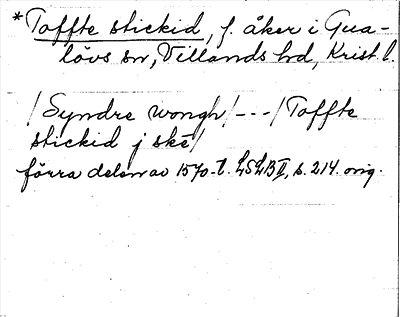 *Toffte stickid, f. åker i Gua-
lövs sn, Villands hd, Krist. l.
/Syndre wongh/---/Toffte
stickid j ske/
förra delen av 1570-t. LSLB II, s. 214. orig.